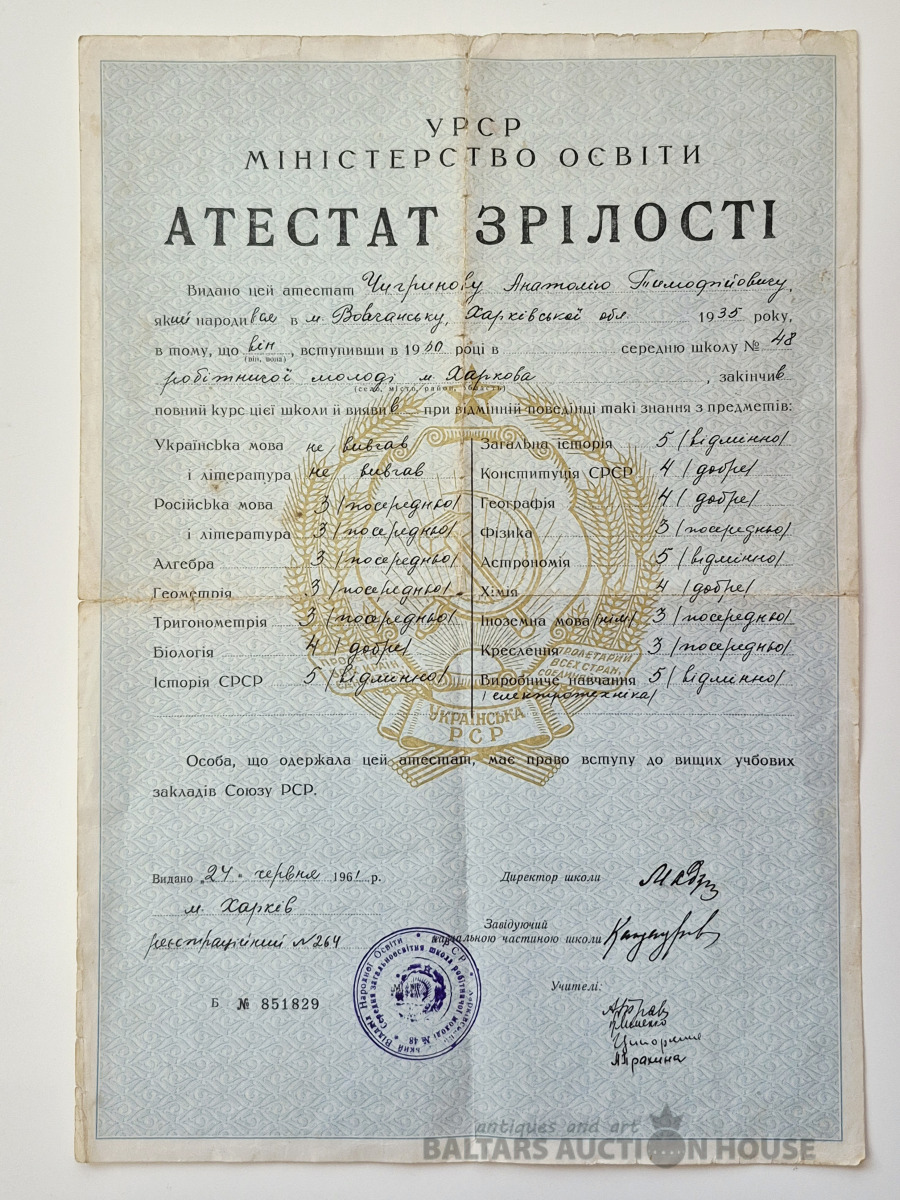 УРСР
МІНІСТЕРСТВО ОСВІТИ
АТЕСТАТ ЗРІЛОСТІ
Видано цей атестат Чигринову Анатолію Тимофійовичу,
який народився в м. Вовчанську, Харківської обл 1935 року,
в тому, що він, вступивши в 1950 році в середню школу № 48
(він, вона)
робітничої молоді м. Харкова, закінчив
(село, місто, район, область)
повний курс цієї школи й виявив при відмінній поведінці такі знання з предметів:
Українська мова не вивчав
і література не вивчав
Російська мова 3 /посередньо/
і література 3 /посередньо/
Алгебра 3 /посередньо/
Геометрія 3 /посередньо/
Тригонометрія 3 /посередньо/
Біологія 4 /добре/
Історія СРСР 5 /відмінно/
Загальна історія 5 /відмінно/
Конституція СРСР 4 /добре/
Географія 4 /добре/
Фізика 3 /посередньо/
Астрономія 5 /відмінно/
Хімія 4 /добре/
Іноземна мова /нім/ 3 /посередньо/
Креслення 3 /посередньо/
Виробниче навчання 5 /відмінно/
/електротехніка/
ПРОЛЕТАРИИ
ВСЕХ СТРАН,
УКРАЇНСЬКА
РСР
Особа, що одержала цей атестат, має право вступу до вищих учбових
закладів Союзу РСР.
Видано „24" червня 1961 р.
м. Харків
реєстраційний №264
Б № 851829
Директор школи
Завідуючий
навчальною частиною школи
Учителі:
УРСР
Відділ Народної Освіти
Середня загальноосвітня школа робітничої молоді № 48
antiques and art
BALTARS AUCTION HOUSE